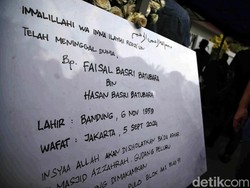 INNALILLAHI WA INNA ILAIHI ROJI'UN
TELAH MENINGGAL DUNIA,
Bp. FAISAL BASRI BATUBARA
BIN
HASAN BASRI BATUBARA
LAHIR : BANDUNG, 6 NOV 1959
WAFAT : JAKARTA, 5 SEPT. 2024
INSYAA ALLAH AKAN DISHOLATKAN BA'DA ASHAR
MASJID AZZAHRAH, GUDANG PELURU
DIMAKAMKAN
detikcom